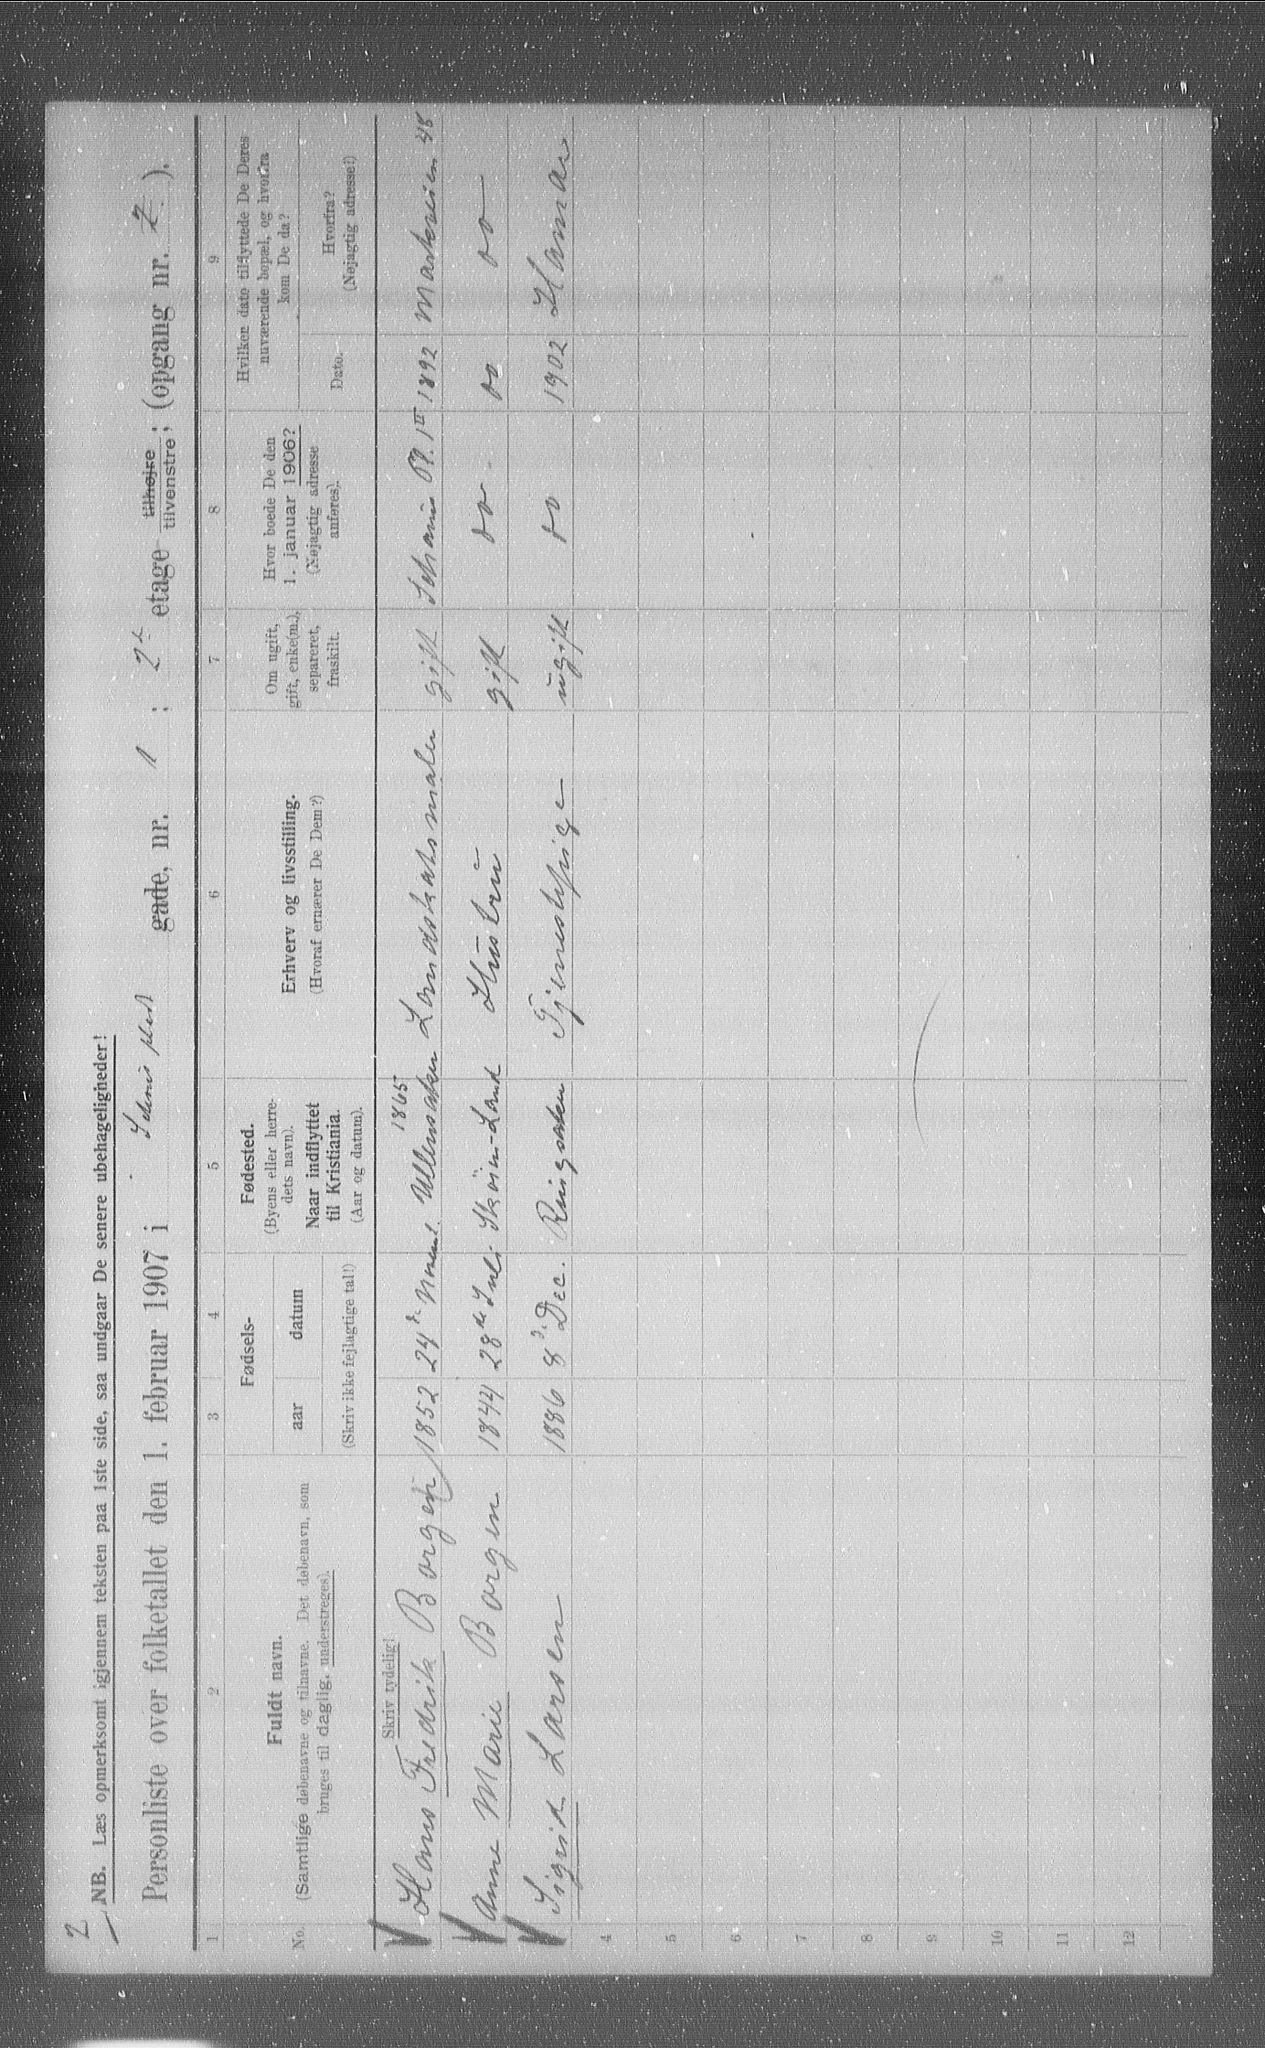 2
NB. Læs opmerksomt igjennem teksten paa 1ste side, saa undgaar De senere ubehageligheder!
Personliste over folketallet den 1. februar 1907 i Schous plads gade, nr. 1 ; 2 etage tilhøjre tilvenstre; (opgang nr. 2).
1 2 3 4 5 6 7 8 9
No.
Fuldt navn.
(Samtlige døbenavne og tilnavne. Det døbenavn, som
bruges til daglig, understreges).
Fødsels-
aar datum
(Skriv ikke fejlagtige tal!)
Fødested.
(Byens eller herre-
dets navn).
Naar indflyttet
til Kristiania.
(Aar og datum).
Erhverv og livsstilling.
(Hvoraf ernærer De Dem?)
Om ugift,
gift, enke(m.),
separeret,
fraskilt.
Hvor boede De den
1. januar 1906?
(Nøjagtig adresse
anføres).
Hvilken dato tilflyttede De Deres
nuværende bopæl, og hvorfra
kom De da?
Dato.
Hvorfra?
(Nøjagtig adresse!)
Skriv tydelig!
1865
Hans Fredrik Borgen 1852 24 Ullensaker Landskabsmaler gift Schous Pl. 1 II 1892 Markveien 48
Anne Marie Borgen 1844 28de Juli Land Hustru gift do do do
Sigrid Larsen 1886 8 Dec. Ringsaker Tjenestepige ugift do 1902 Hamar
4
5
6
7
8
9
10
11
12